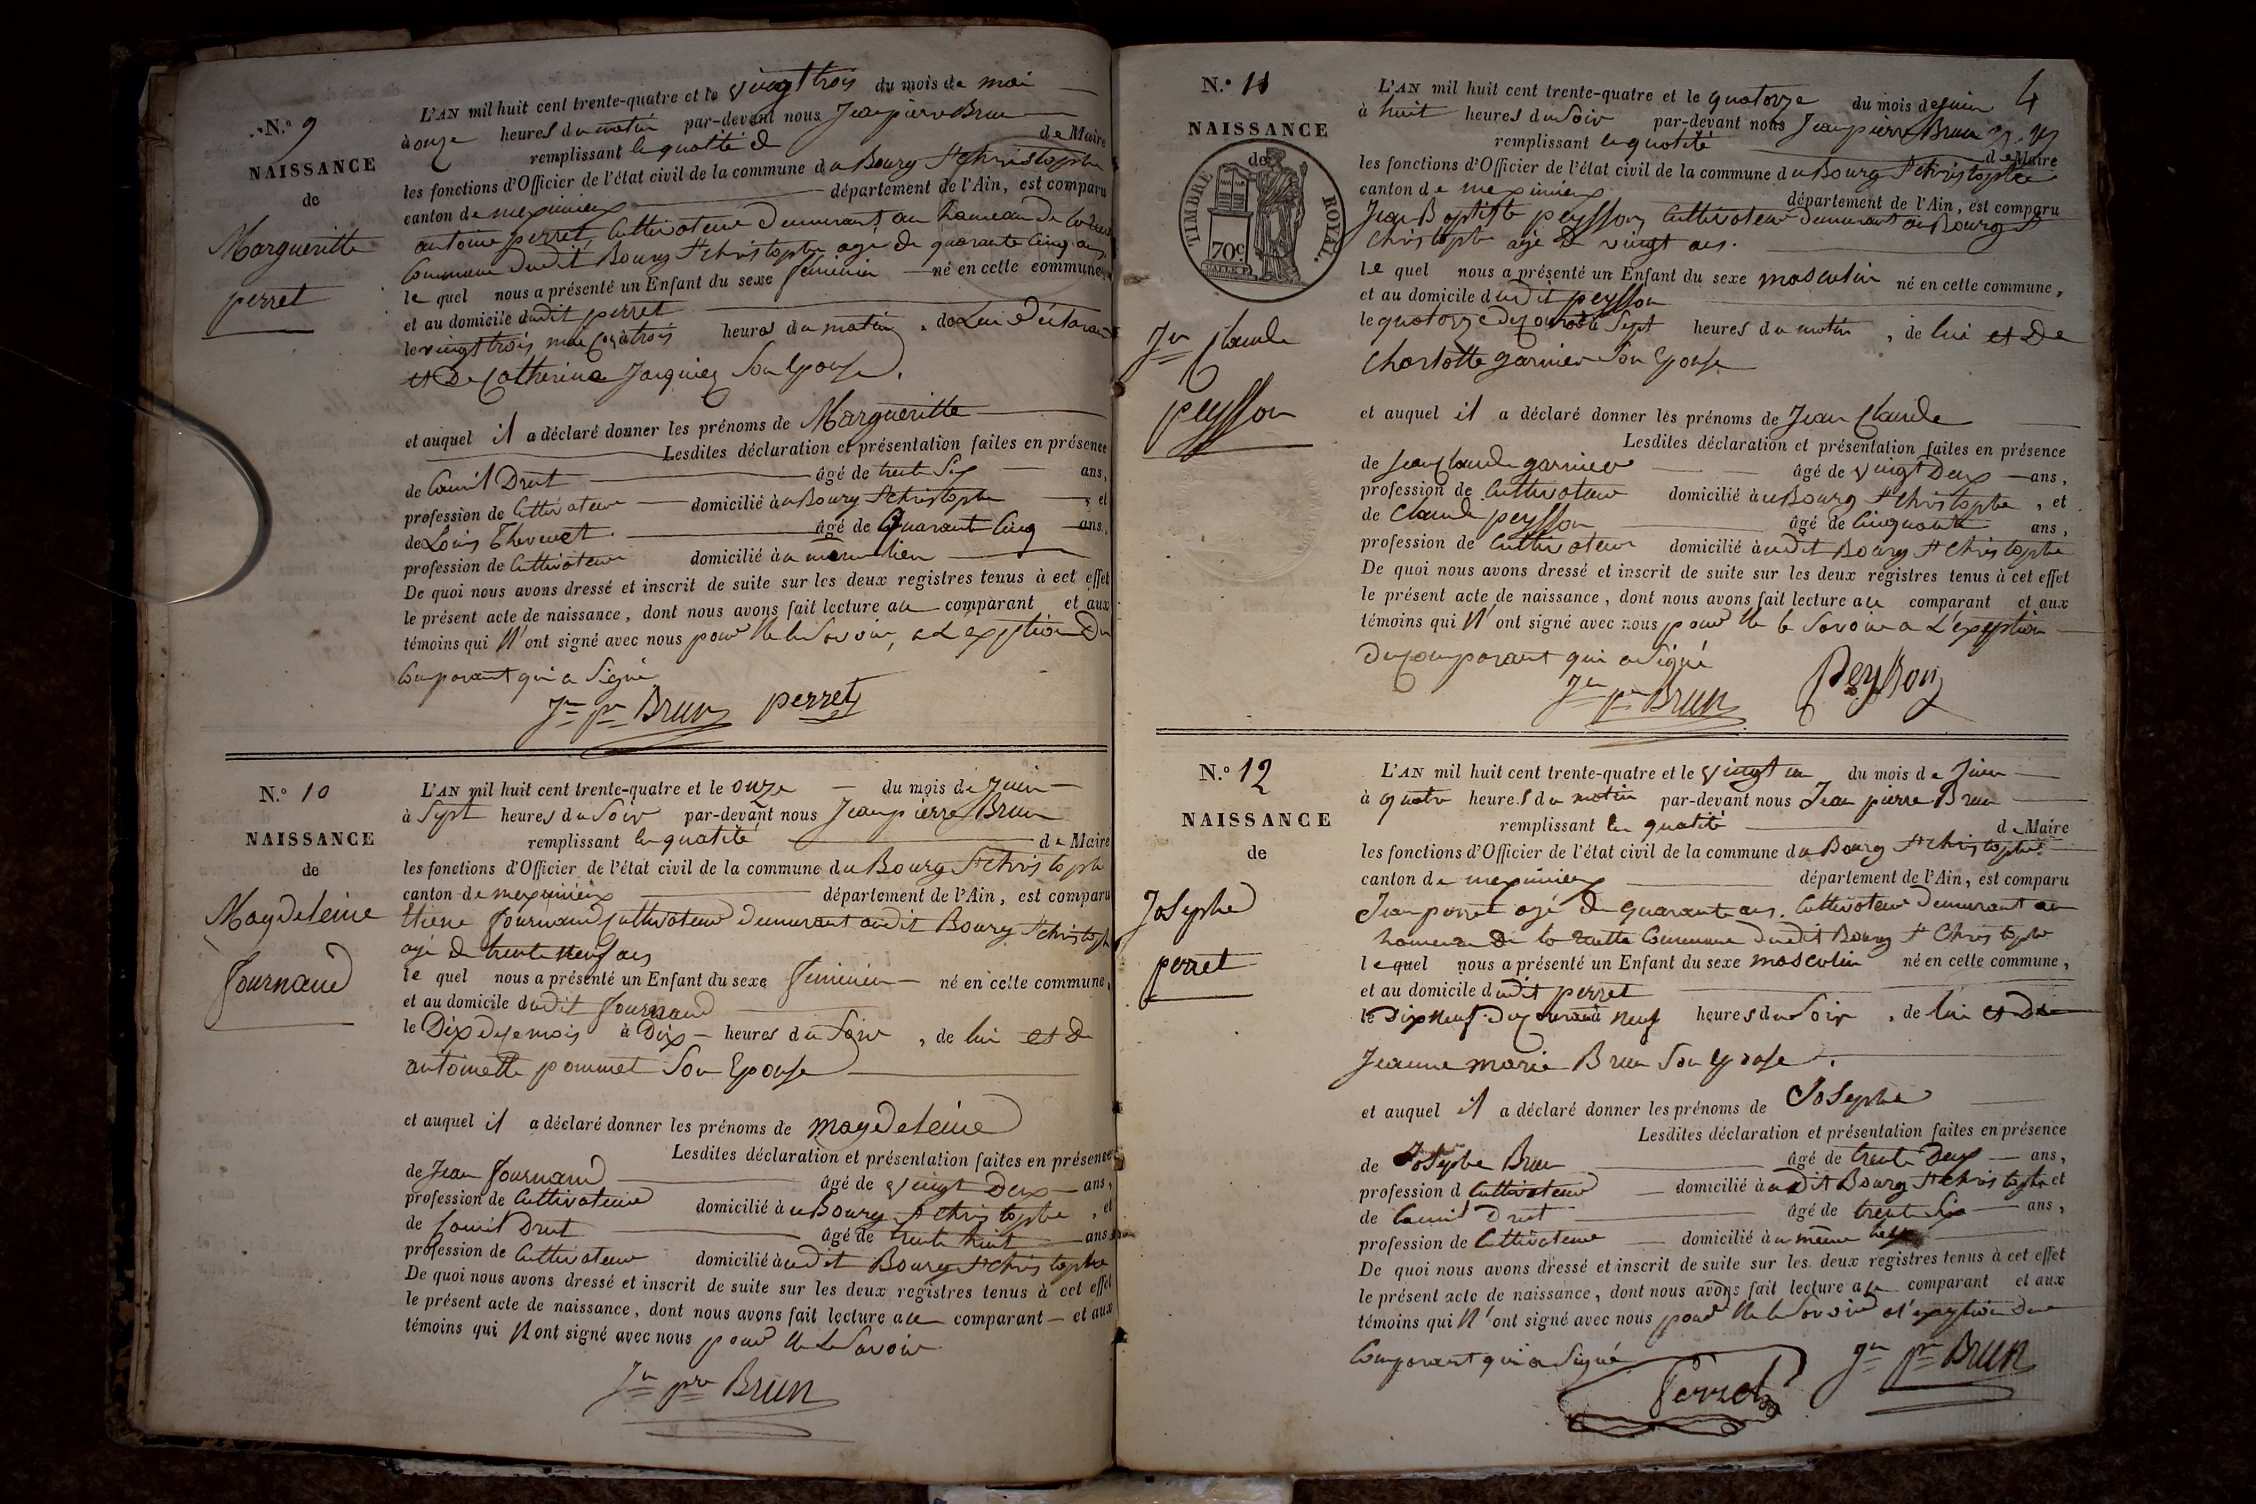 N.° 9
NAISSANCE
de
Margueritte
perret
L'AN mil huit cent trente-quatre et le vingt trois du mois de mai
à onze heures du matin par-devant nous Jean pierre Brun
remplissant la qualité d de Maire
les fonctions d'Officier de l'état civil de la commune du Bourg St christophe
canton de meximieux département de l'Ain, est comparu
antoine perret, Cultivateur demeurant au hameau de
Commune dudit Bourg St christophe age de quarante Cinq ans
le quel nous a présenté un Enfant du sexe feminin né en cette commune,
et au domicile dudit perret
le vingt trois mai à trois heures du matin, de Lui déclarant
et De Catherine Jarquiez Son Epouse.
et auquel il a déclaré donner les prénoms de Margueritte
Lesdites déclaration et présentation faites en présence
de Drut âgé de trente Six ans,
profession de Cultivateur domicilié au Bourg St christophe, et
de Louis Thevenet âgé de Quarant Cinq ans,
profession de Cultivateur domicilié au même lieu
De quoi nous avons dressé et inscrit de suite sur les deux registres tenus à cet effet
le présent acte de naissance, dont nous avons fait lecture au comparant et aux
témoins qui N'ont signé avec nous pour Ne le Savoir, a L'exeption Du
Comparant qui a Signé
Jn pre Brun perret
N.° 10
NAISSANCE
de
Magdeleine
fournand
L'AN mil huit cent trente-quatre et le onze du mois de Juin
à Sept heures du Soir par-devant nous Jean pierre Brun
remplissant la qualité de Maire
les fonctions d'Officier de l'état civil de la commune du Bourg St christophe
canton de meximieux département de l'Ain, est comparu
Etiene fournand Cultivateur demeurant audit Bourg St christophe
agé de trente neuf ans
le quel nous a présenté un Enfant du sexe feminin né en cette commune,
et au domicile dudit fournand
le Dix de ce mois à Dix heures du Soir, de lui et de
antoinette pommet Son Epouse
et auquel il a déclaré donner les prénoms de magdeleine
Lesdites déclaration et présentation faites en présence
de Jean fournand âgé de vingt Deux ans,
profession de Cultivateur domicilié au Bourg St christophe, et
de Drut âgé de trente huit ans
profession de Cultivateur domicilié audit Bourg St christophe
De quoi nous avons dressé et inscrit de suite sur les deux registres tenus à cet effet
le présent acte de naissance, dont nous avons fait lecture au comparant et aux
témoins qui N ont signé avec nous pour Ne le Savoir
Jn pre Brun
4
N.° 11
NAISSANCE
de
TIMBRE ROYAL.
70c
Jn Claude
peysson
L'AN mil huit cent trente-quatre et le quatorze du mois de juin
à huit heures du Soir par-devant nous Jean pierre Brun
remplissant la qualité de Maire
les fonctions d'Officier de l'état civil de la commune du Bourg St christophe
canton de meximieux département de l'Ain, est comparu
Jean Baptiste peysson, Cultivateur demeurant au Bourg St
Christophe agé de vingt ans.
Le quel nous a présenté un Enfant du sexe masculin né en cette commune,
et au domicile dudit peysson
le quatorze du courant à Sept heures du matin, de lui et De
Charlotte garnier Son Epouse
et auquel il a déclaré donner les prénoms de Jean Claude
Lesdites déclaration et présentation faites en présence
de Jean Claude garnier âgé de vingt Deux ans,
profession de Cultivateur domicilié au Bourg St christophe, et
de Claude peysson âgé de Cinquante ans,
profession de Cultivateur domicilié audit Bourg St christophe
De quoi nous avons dressé et inscrit de suite sur les deux registres tenus à cet effet
le présent acte de naissance, dont nous avons fait lecture au comparant et aux
témoins qui N'ont signé avec nous pour Ne le Savoir a L'exeption
du comparant qui a Signé
Jn pre Brun Peysson
N.° 12
NAISSANCE
de
Josephe
perret
L'AN mil huit cent trente-quatre et le vingt un du mois de Juin
à quatre heures du matin par-devant nous Jean pierre Brun
remplissant la qualité de Maire
les fonctions d'Officier de l'état civil de la commune du Bourg St christophe
canton de meximieux département de l'Ain, est comparu
Jean perret agé de quarante ans. Cultivateur demeurant au
hameau de la Commune dudit Bourg St Christophe
le quel nous a présenté un Enfant du sexe masculin né en cette commune,
et au domicile dudit perret
le Dix Neuf du courant à neuf heures du Soir, de lui et De
Jeanne marie Brun Son Epouse.
et auquel il a déclaré donner les prénoms de Josephe
Lesdites déclaration et présentation faites en présence
de Josephe Brun âgé de trente Deux ans,
profession d Cultivateur domicilié audit Bourg St christophe et
de Drut âgé de trente Six ans,
profession de Cultivateur domicilié au même lieu
De quoi nous avons dressé et inscrit de suite sur les deux registres tenus à cet effet
le présent acte de naissance, dont nous avons fait lecture au comparant et aux
témoins qui N'ont signé avec nous pour Ne le Savoir a l'exeption du
Comparant qui a Signé
Perret Jn pre Brun